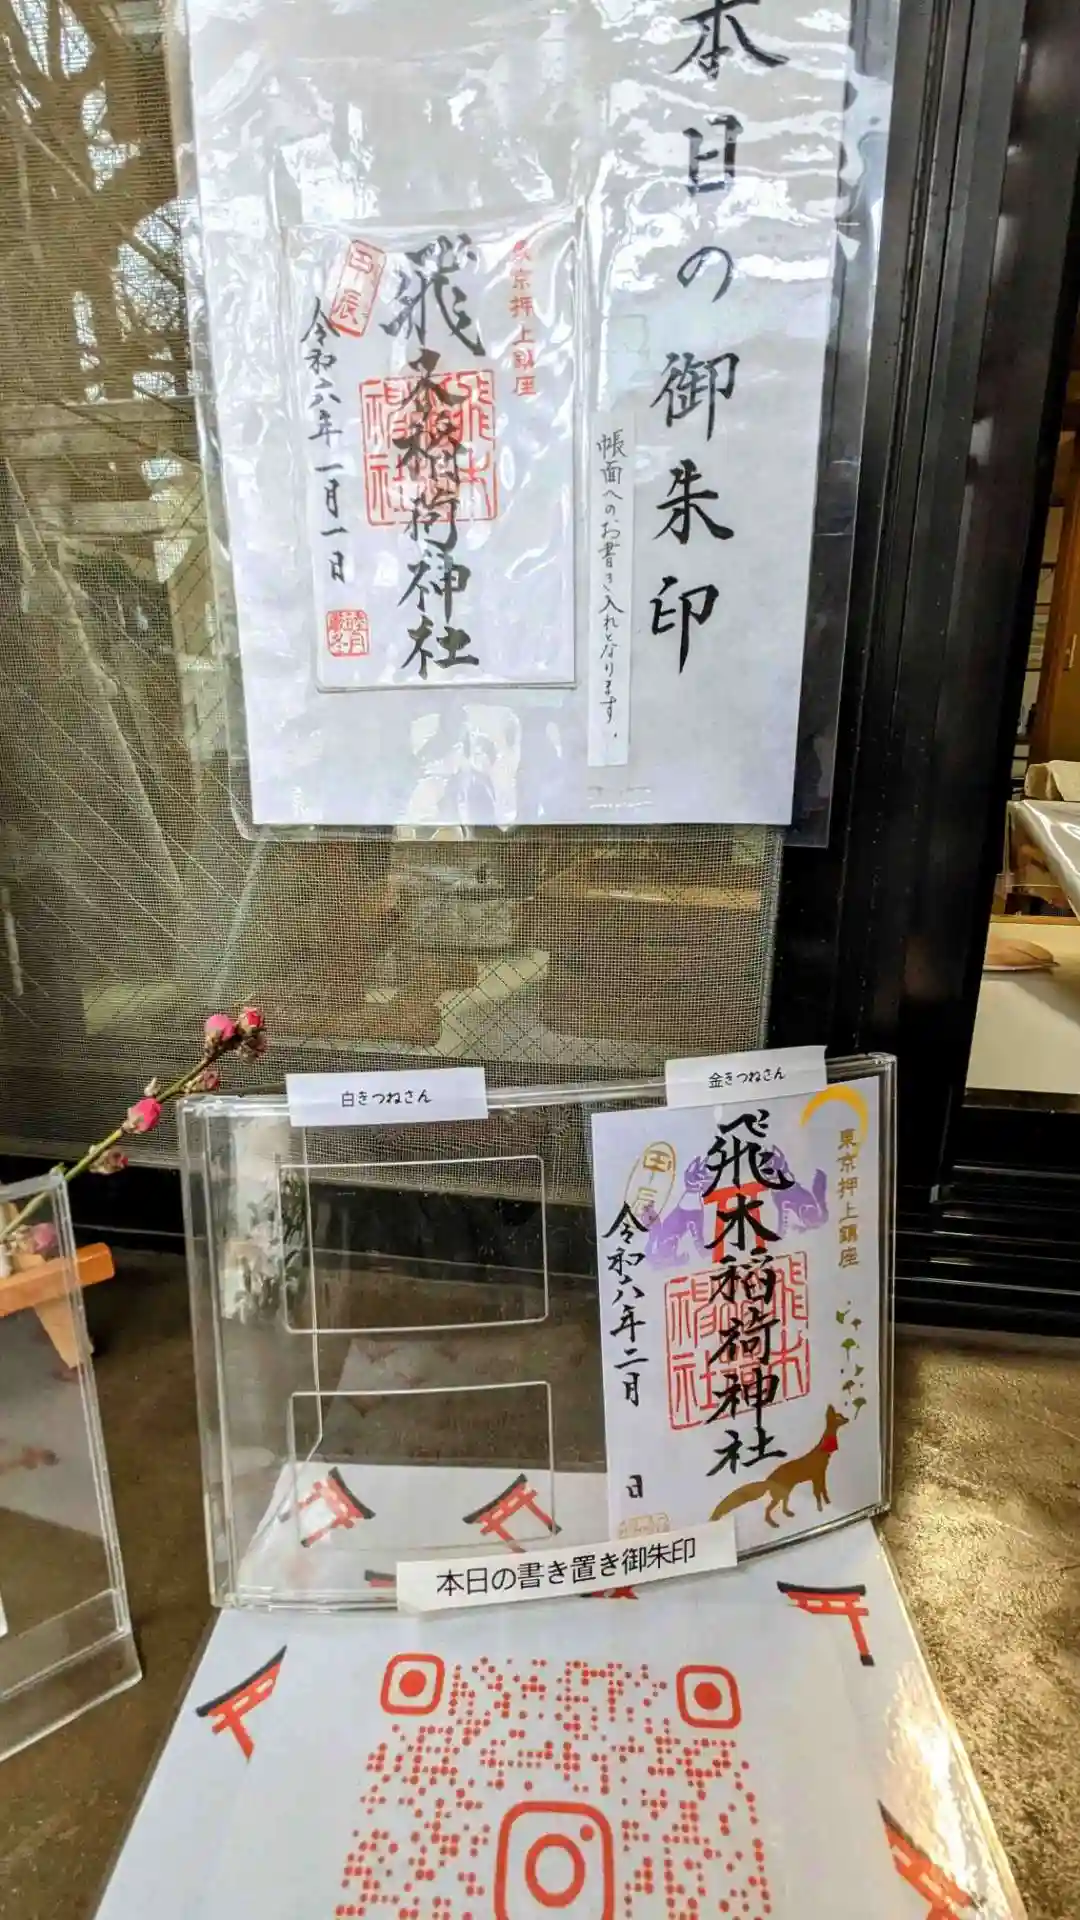 本日の御朱印
帳面へのお書き入れとなります。
東京押上鎮座
飛木稲荷神社
甲辰
令和六年一月一日
白きつねさん
金きつねさん
東京押上鎮座
飛木稲荷神社
甲辰
令和六年二月 日
本日の書き置き御朱印